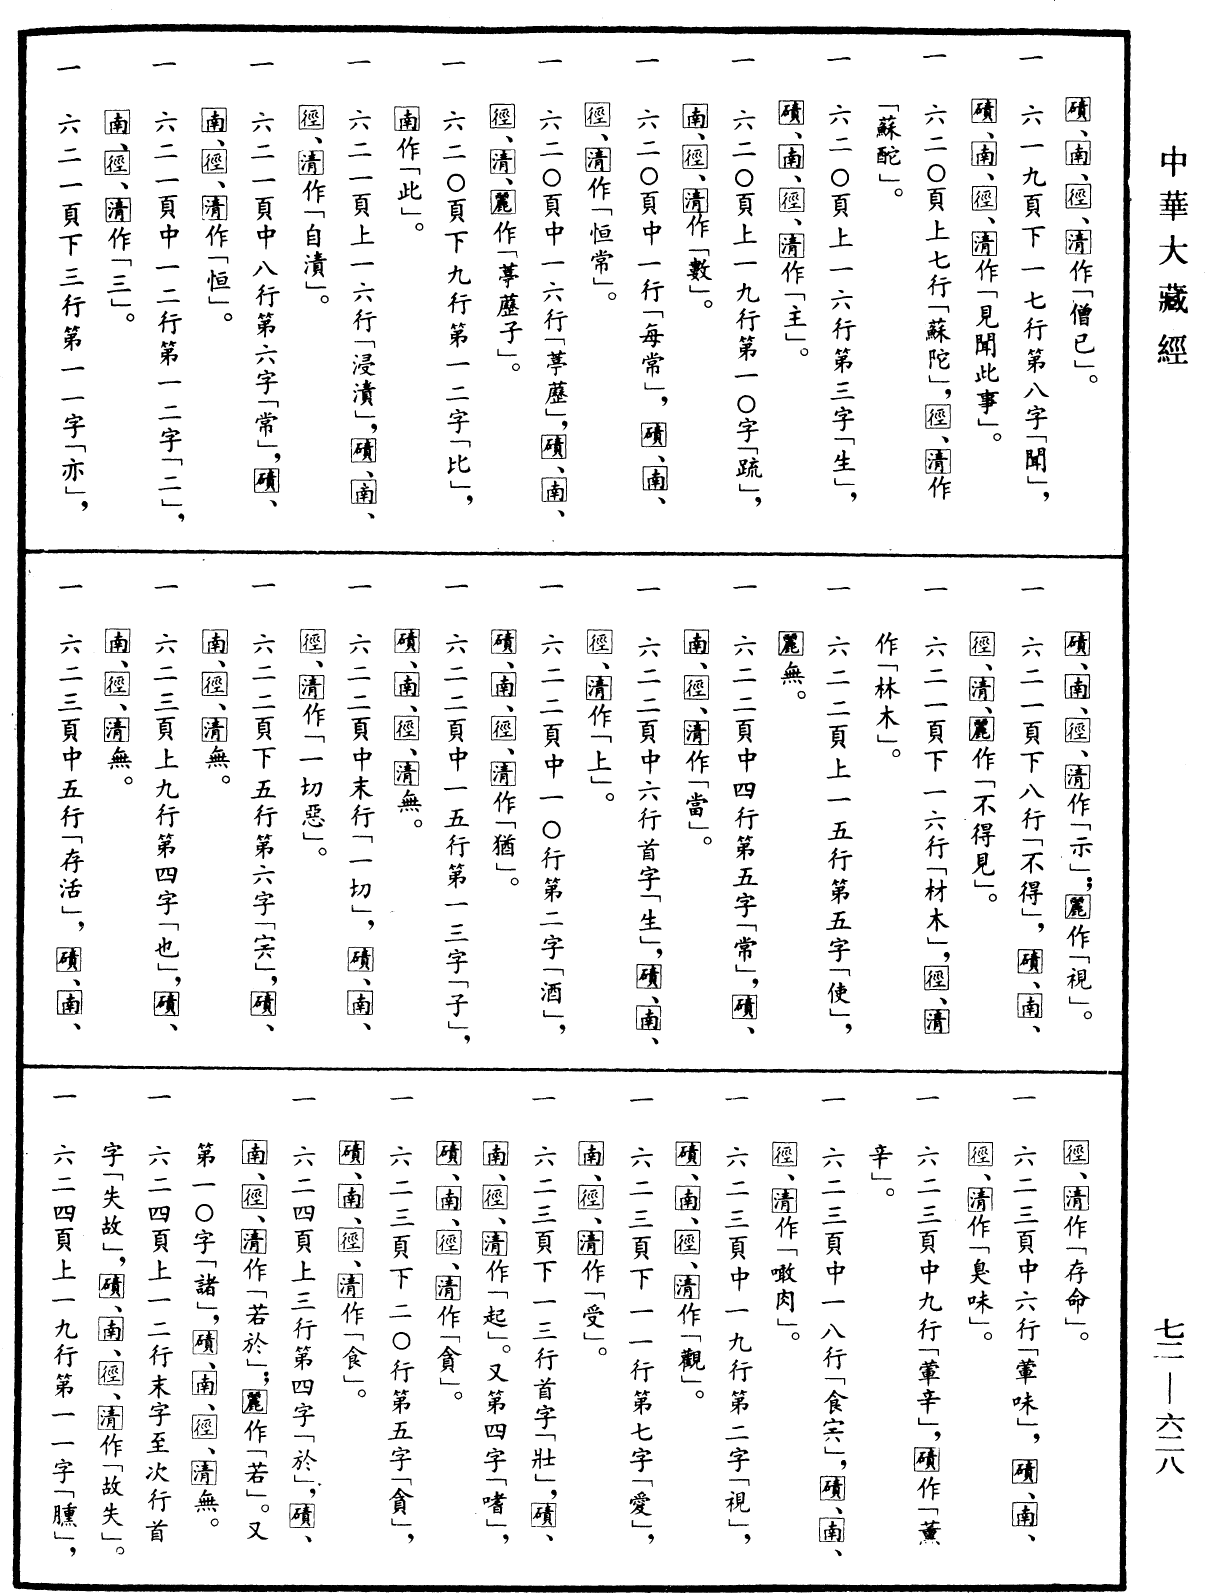 中華大藏經
磧、南、徑、清作「僧已」。
一 六一九頁下一七行第八字「聞」，
磧、南、徑、清作「見聞此事」。
一 六二〇頁上七行「蘇陀」，徑、清作
「蘇酡」。
一 六二〇頁上一六行第三字「生」，
磧、南、徑、清作「主」。
一 六二〇頁上一九行第一〇字「䟽」，
南、徑、清作「數」。
一 六二〇頁中一行「每常」，磧、南、
徑、清作「恒常」。
一 六二〇頁中一六行「葶藶」，磧、南、
徑、清、麗作「葶藶子」。
一 六二〇頁下九行第一二字「比」，
南作「此」。
一 六二一頁上一六行「浸漬」，磧、南、
徑、清作「自漬」。
一 六二一頁中八行第六字「常」，磧、
南、徑、清作「恒」。
一 六二一頁中一二行第一二字「二」，
南、徑、清作「三」。
一 六二一頁下三行第一一字「亦」，
磧、南、徑、清作「示」；麗作「視」。
一 六二一頁下八行「不得」，磧、南、
徑、清、麗作「不得見」。
一 六二一頁下一六行「材木」，徑、清
作「林木」。
一 六二二頁上一五行第五字「使」，
麗無。
一 六二二頁中四行第五字「常」，磧、
南、徑、清作「當」。
一 六二二頁中六行首字「生」，磧、南、
徑、清作「上」。
一 六二二頁中一〇行第二字「酒」，
磧、南、徑、清作「猶」。
一 六二二頁中一五行第一三字「子」，
磧、南、徑、清無。
一 六二二頁中末行「一切」，磧、南、
徑、清作「一切惡」。
一 六二二頁下五行第六字「宍」，磧、
南、徑、清無。
一 六二三頁上九行第四字「也」，磧、
南、徑、清無。
一 六二三頁中五行「存活」，磧、南、
徑、清作「存命」。
一 六二三頁中六行「葷味」，磧、南、
徑、清作「臭味」。
一 六二三頁中九行「葷辛」，磧作「薰
辛」。
一 六二三頁中一八行「食宍」，磧、南、
徑、清作「噉肉」。
一 六二三頁中一九行第二字「視」，
磧、南、徑、清作「觀」。
一 六二三頁下一一行第七字「愛」，
南、徑、清作「受」。
一 六二三頁下一三行首字「壯」，磧、
南、徑、清作「起」。又第四字「嗜」，
磧、南、徑、清作「貪」。
一 六二三頁下二〇行第五字「貪」，
磧、南、徑、清作「食」。
一 六二四頁上三行第四字「於」，磧、
南、徑、清作「若於」；麗作「若」。又
第一〇字「諸」，磧、南、徑、清無。
一 六二四頁上一二行末字至次行首
字「失故」，磧、南、徑、清作「故失」。
一 六二四頁上一九行第一一字「臐」，
七二—六二八